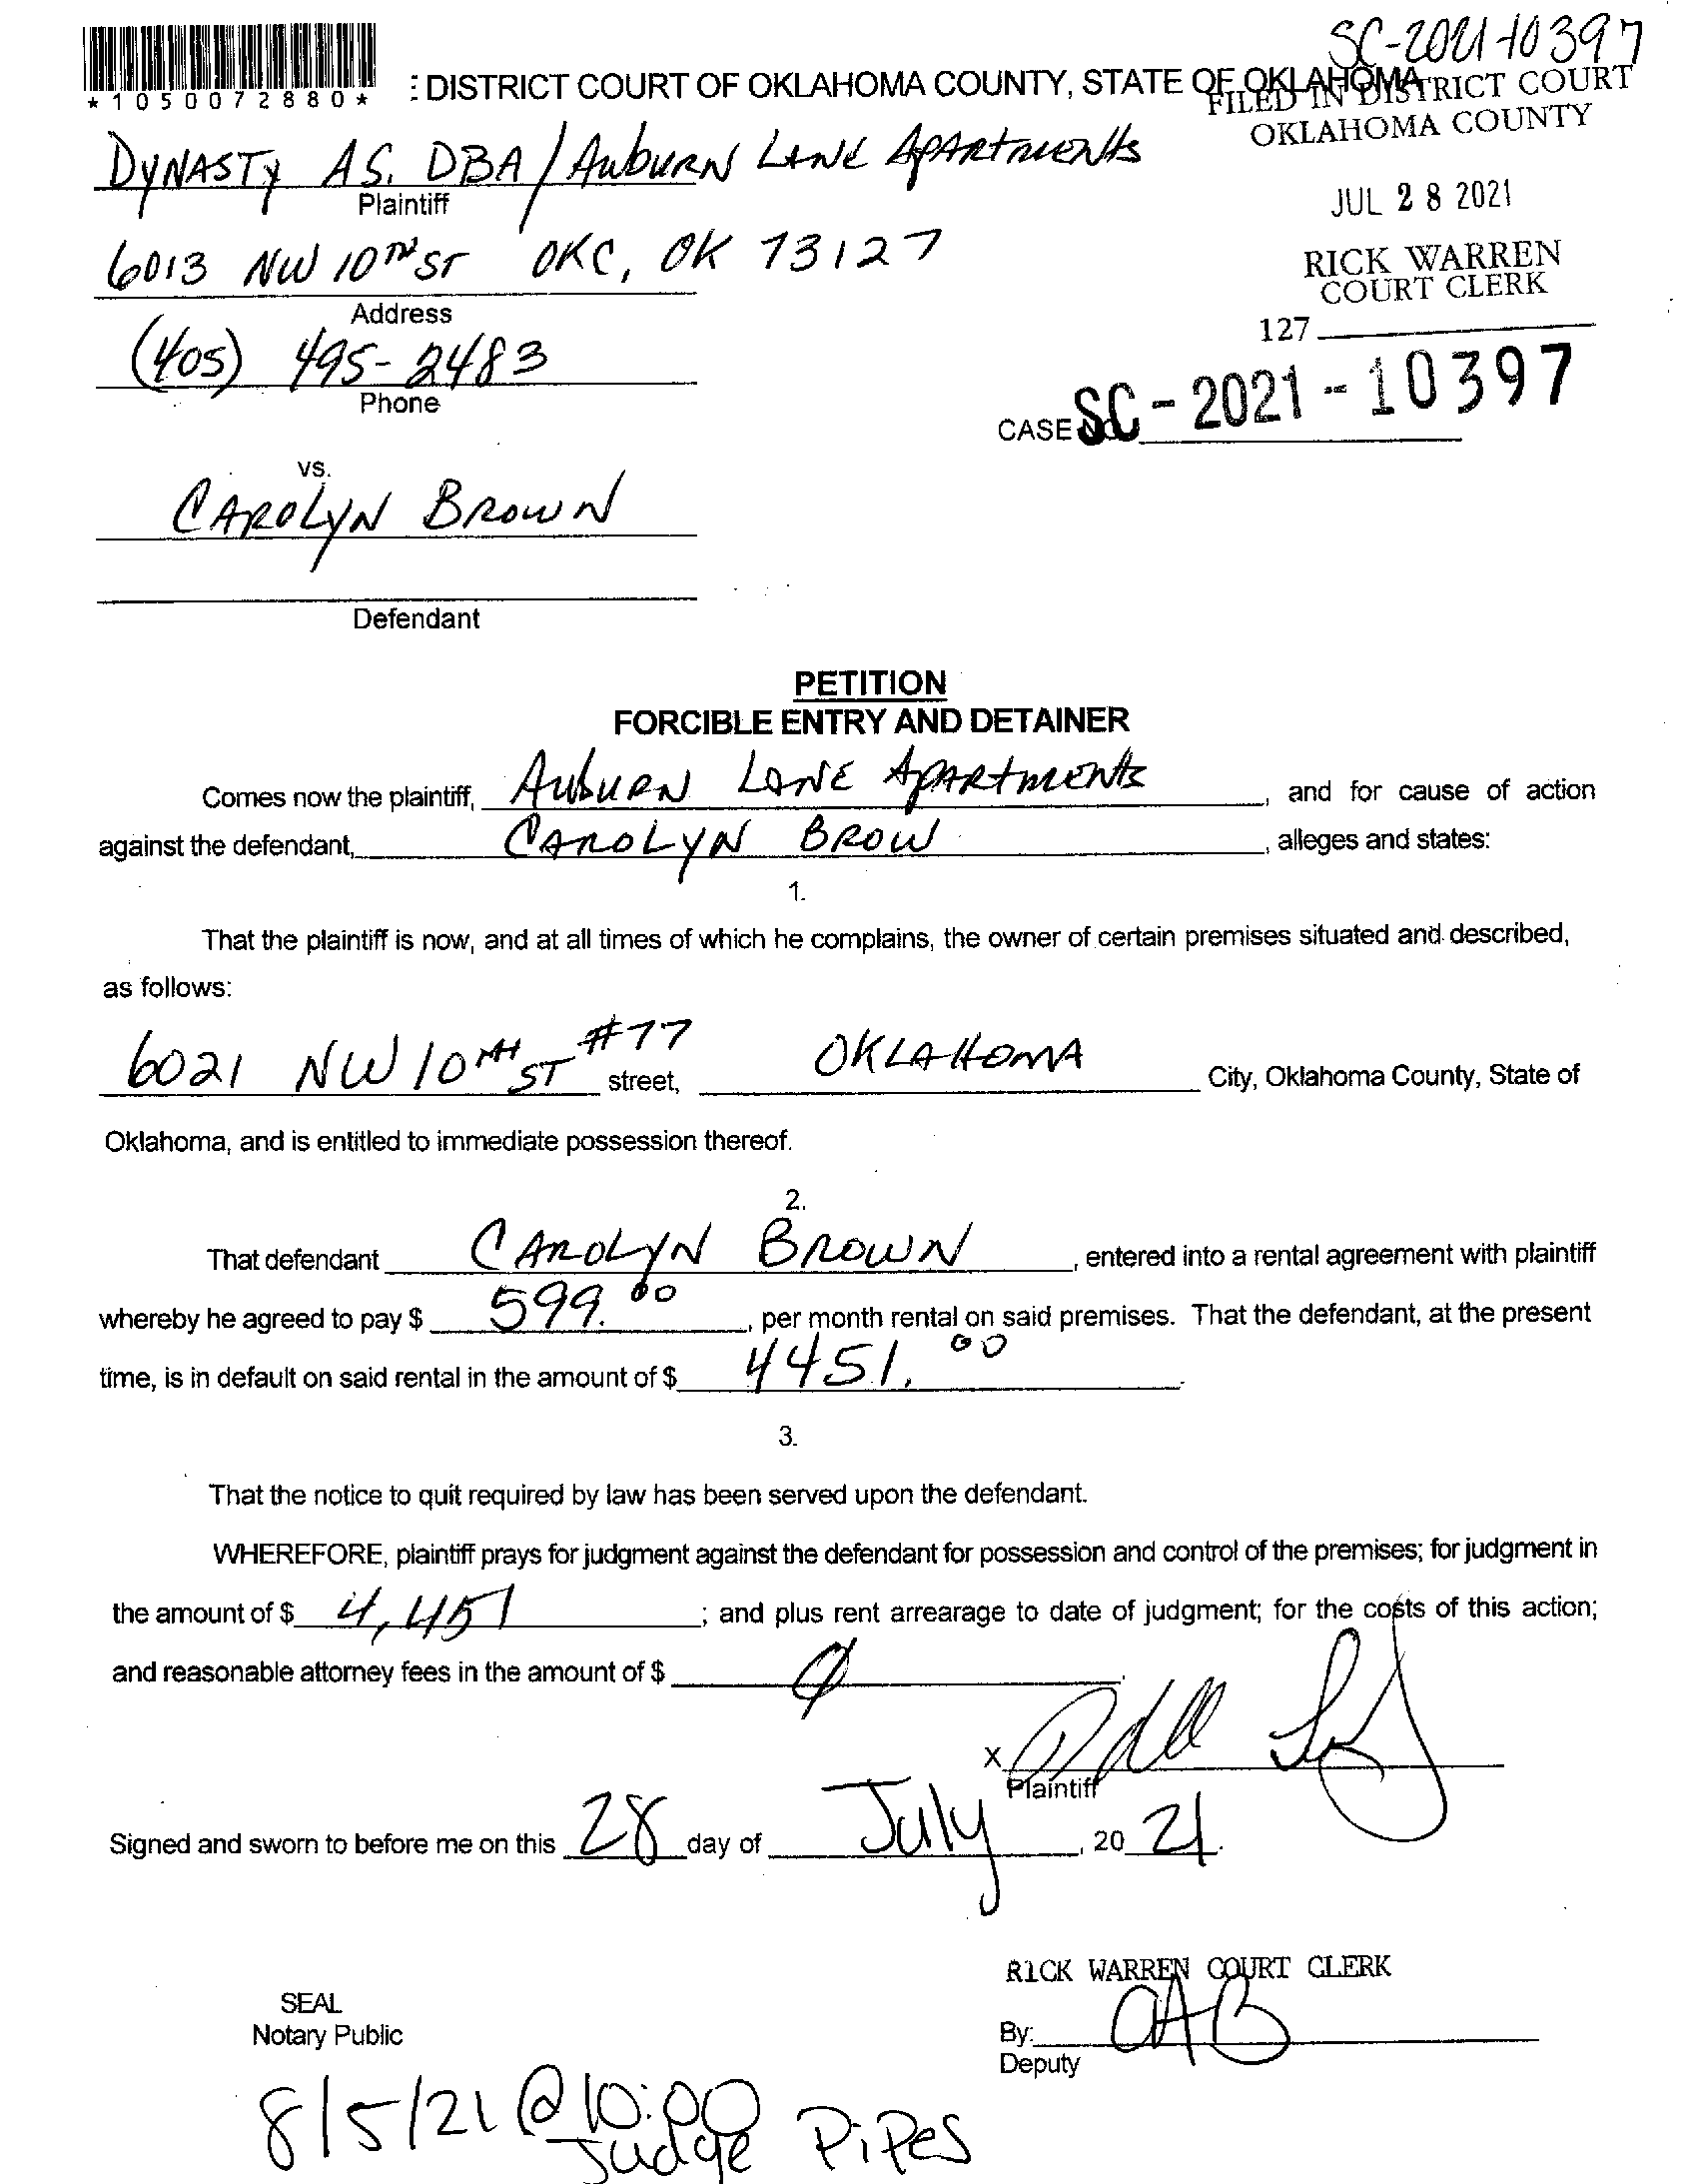 SC-2021-10397
*1050072880*
: DISTRICT COURT OF OKLAHOMA COUNTY, STATE OF OKLAHOMA
FILED IN DISTRICT COURT
OKLAHOMA COUNTY
DYNASTY AS. DBA/AUBURN LANE APARTMENTS
Plaintiff
JUL 28 2021
6013 NW 10TH ST OKC, OK 73127
RICK WARREN
COURT CLERK
Address
127
(405) 495-2483
Phone
CASE NO. SC-2021-10397
vs.
CAROLYN BROWN
Defendant
PETITION
FORCIBLE ENTRY AND DETAINER
Comes now the plaintiff, AUBURN LANE APARTMENTS, and for cause of action
against the defendant, CAROLYN BROW, alleges and states:
1.
That the plaintiff is now, and at all times of which he complains, the owner of certain premises situated and described,
as follows:
6021 NW 10TH ST #77 street, OKLAHOMA City, Oklahoma County, State of
Oklahoma, and is entitled to immediate possession thereof.
2.
That defendant CAROLYN BROWN, entered into a rental agreement with plaintiff
whereby he agreed to pay $ 599.00, per month rental on said premises. That the defendant, at the present
time, is in default on said rental in the amount of $ 4451.00.
3.
That the notice to quit required by law has been served upon the defendant.
WHEREFORE, plaintiff prays for judgment against the defendant for possession and control of the premises; for judgment in
the amount of $ 4,451; and plus rent arrearage to date of judgment; for the costs of this action;
and reasonable attorney fees in the amount of $ 0.
X
Plaintiff
Signed and sworn to before me on this 28 day of July, 20 21.
RICK WARREN COURT CLERK
SEAL
Notary Public
By: CAB
Deputy
8/5/21 @ 10:00
Judge Pipes